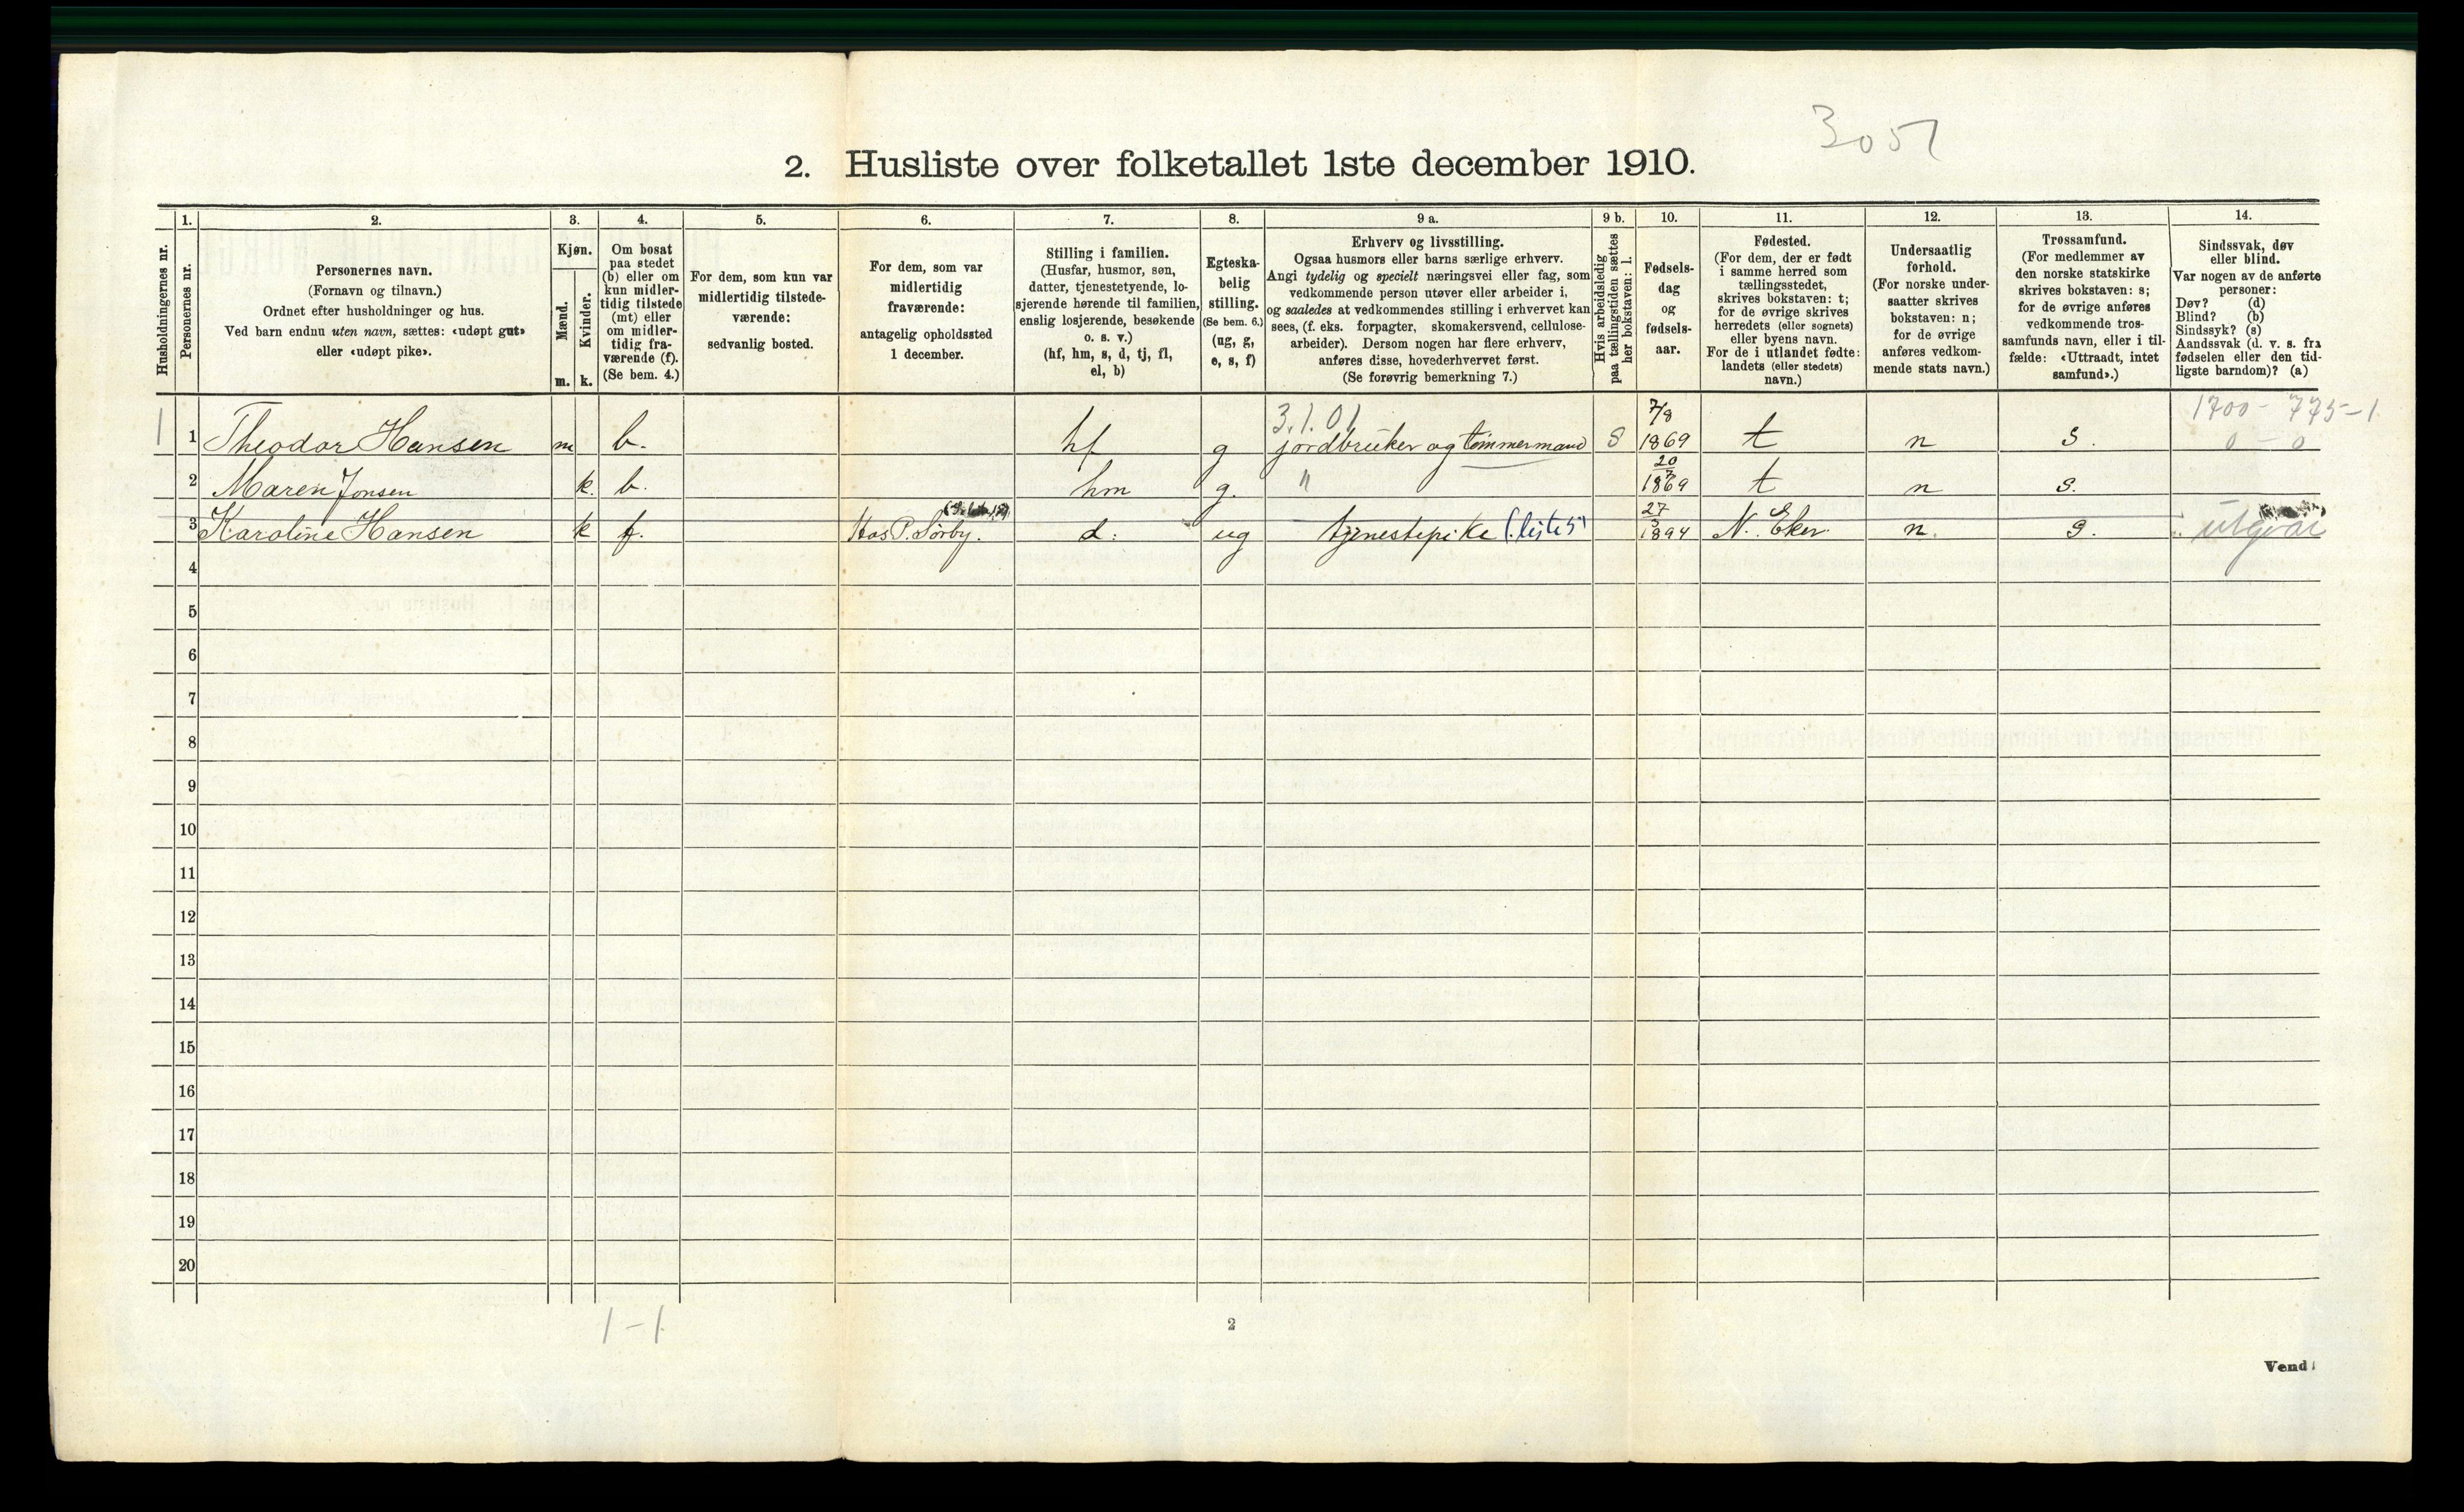 3051
2. Husliste over folketallet 1ste december 1910.
Husholdningernes nr.
1.
Personernes nr.
2.
Personernes navn.
(Fornavn og tilnavn.)
Ordnet efter husholdninger og hus.
Ved barn endnu uten navn, sættes: «udøpt gut»
eller «udøpt pike».
3.
Kjøn.
Mænd.
Kvinder.
m. k.
4.
Om bosat
paa stedet
(b) eller om
kun midler-
tidig tilstede
(mt) eller
om midler-
tidig fra-
værende (f).
(Se bem. 4.)
5.
For dem, som kun var
midlertidig tilstede-
værende:
sedvanlig bosted.
6.
For dem, som var
midlertidig
fraværende:
antagelig opholdssted
1 december.
7.
Stilling i familien.
(Husfar, husmor, søn,
datter, tjenestetyende, lo-
sjerende hørende til familien,
enslig losjerende, besøkende
o. s. v.)
(hf, hm, s, d, tj, fl,
el, b)
8.
Egteska-
belig
stilling.
(Se bem. 6.)
(ug, g,
e, s, f)
9 a.
Erhverv og livsstilling.
Ogsaa husmors eller barns særlige erhverv.
Angi tydelig og specielt næringsvei eller fag, som
vedkommende person utøver eller arbeider i,
og saaledes at vedkommendes stilling i erhvervet kan
sees, (f. eks. forpagter, skomakersvend, cellulose-
arbeider). Dersom nogen har flere erhverv,
anføres disse, hovederhvervet først.
(Se forøvrig bemerkning 7.)
9 b.
Hvis arbeidsledig
paa tællingstiden sættes
her bokstaven: l.
10.
Fødsels-
dag
og
fødsels-
aar.
11.
Fødested.
(For dem, der er født
i samme herred som
tællingsstedet,
skrives bokstaven: t;
for de øvrige skrives
herredets (eller sognets)
eller byens navn.
For de i utlandet fødte:
landets (eller stedets)
navn.)
12.
Undersaatlig
forhold.
(For norske under-
saatter skrives
bokstaven: n;
for de øvrige
anføres vedkom-
mende stats navn.)
13.
Trossamfund.
(For medlemmer av
den norske statskirke
skrives bokstaven: s;
for de øvrige anføres
vedkommende tros-
samfunds navn, eller i til-
fælde: «Uttraadt, intet
samfund».)
14.
Sindssvak, døv
eller blind.
Var nogen av de anførte
personer:
Døv? (d)
Blind? (b)
Sindssyk? (s)
Aandssvak (d. v. s. fra
fødselen eller den tid-
ligste barndom)? (a)
3.1.01 7/8 1700 - 775-1
1 1 Theodor Hansen m b. hf g jordbruker og tømmermand S 1869 t n s. 0 - 0
2 Maren Jonsen k. b. hm g. " 20/7 1869 t n s.
3 Karoline Hansen k f. Hos P. Sørby. d. ug tjenestepike (liste 5) 27/3 1894 N. Eker n. s. utgaar
4
5
6
7
8
9
10
11
12
13
14
15
16
17
18
19
20
1-1
2
Vend!